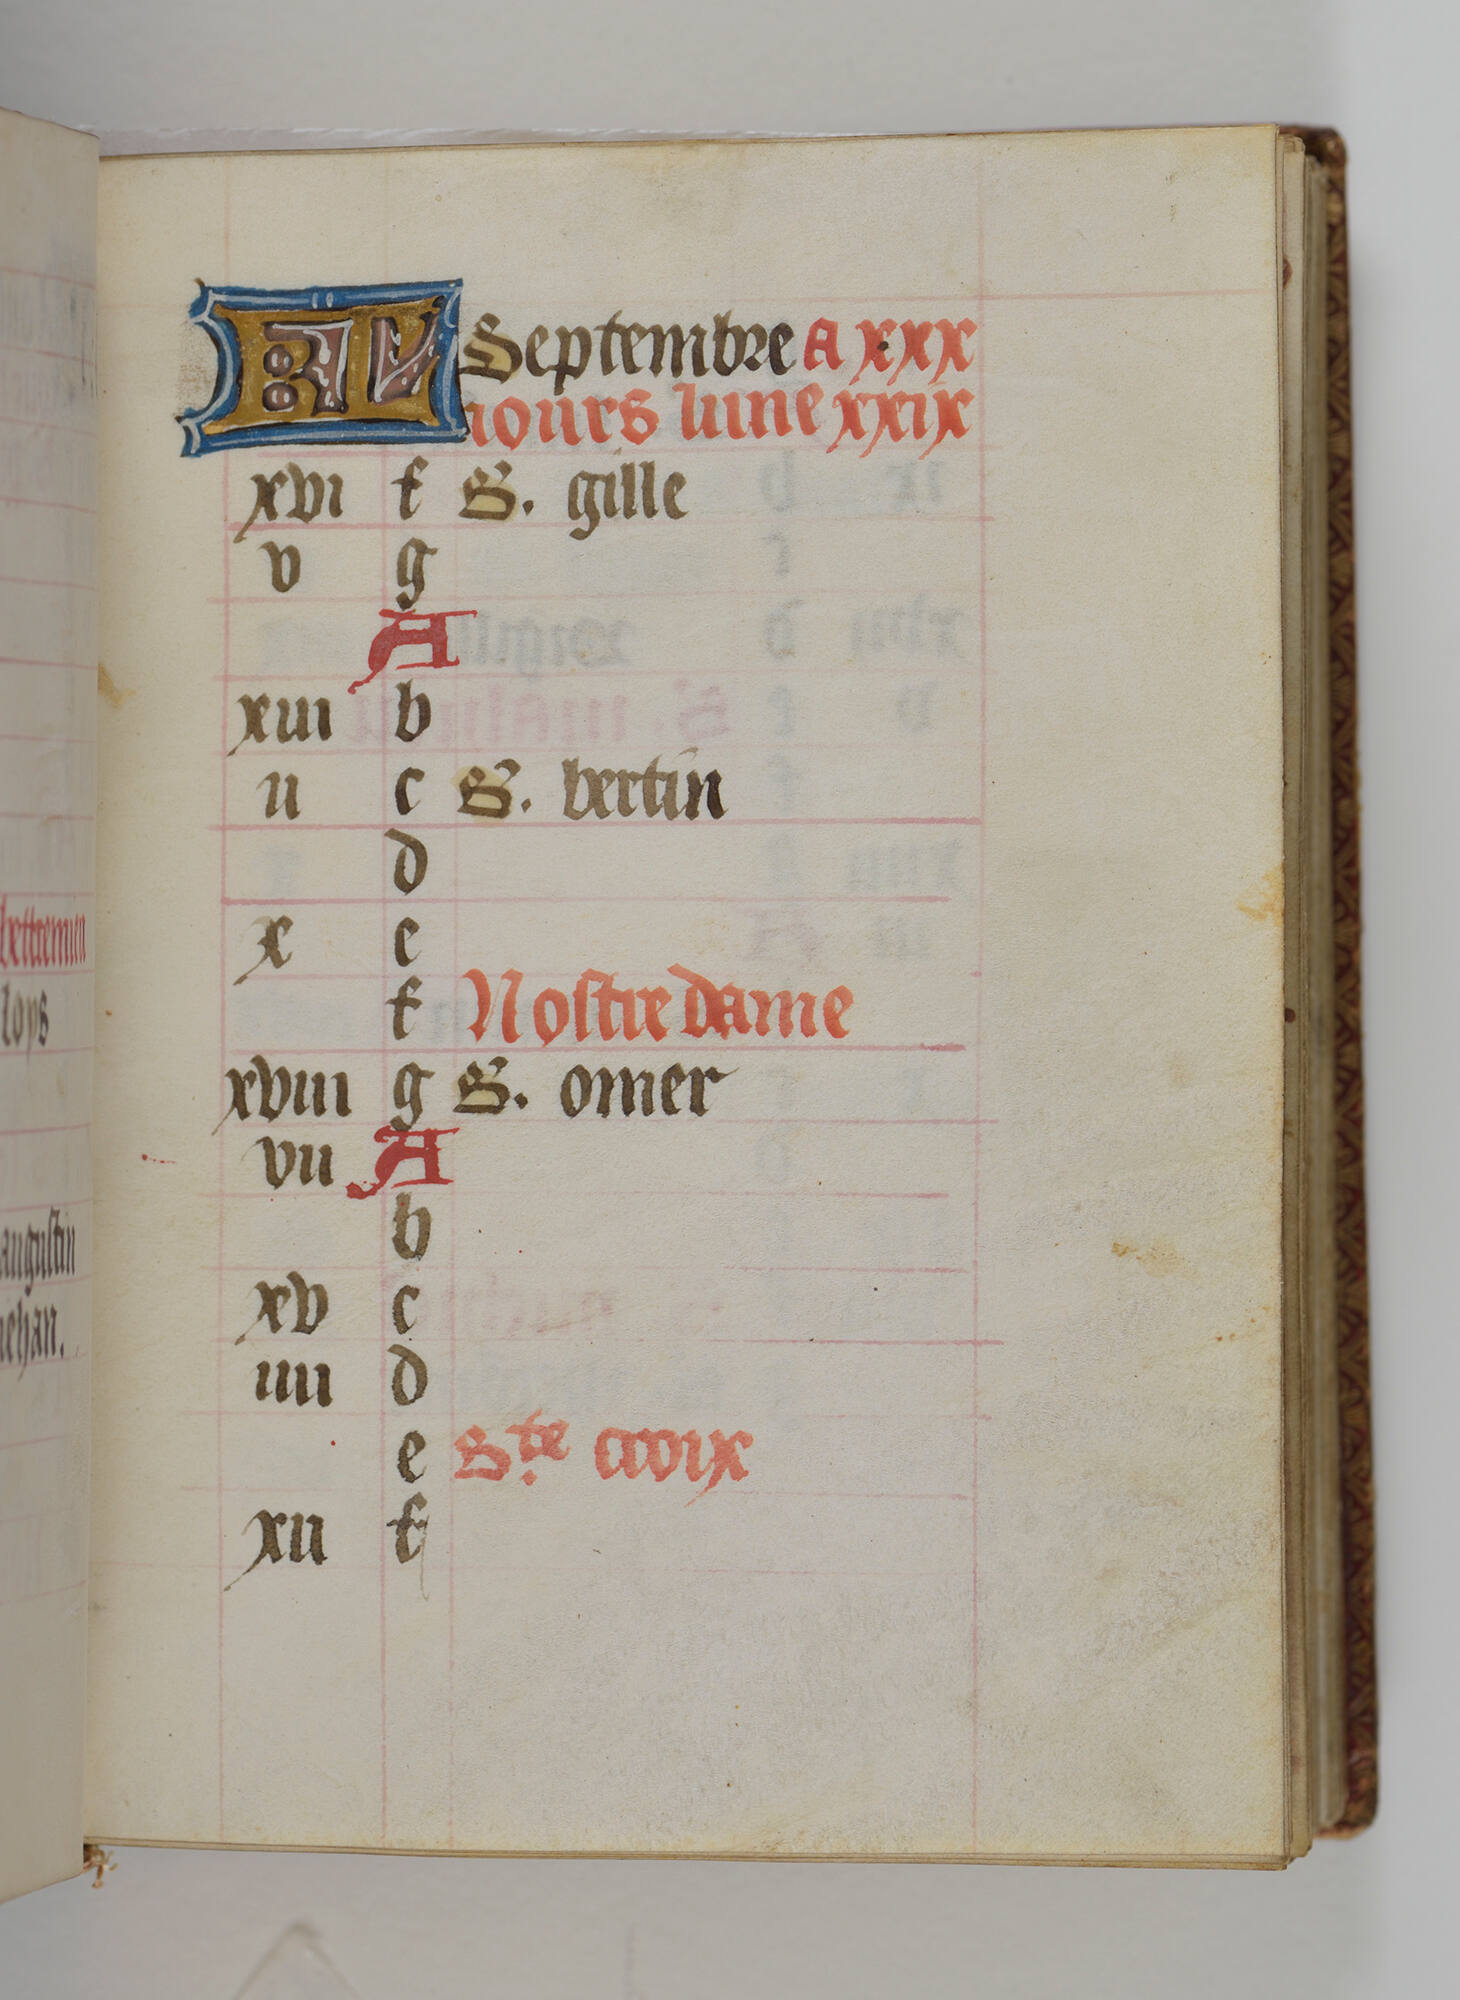 KL Septembre A xxx
iours lune xxix
xvi f S. gille
v g
A
xiii b
ii c S. bertin
d
x e
f Nostre dame
xviii g S. omer
vii A
b
xv c
iiii d
e Ste croix
xii f
bettremieu
loys
augustin
iehan.